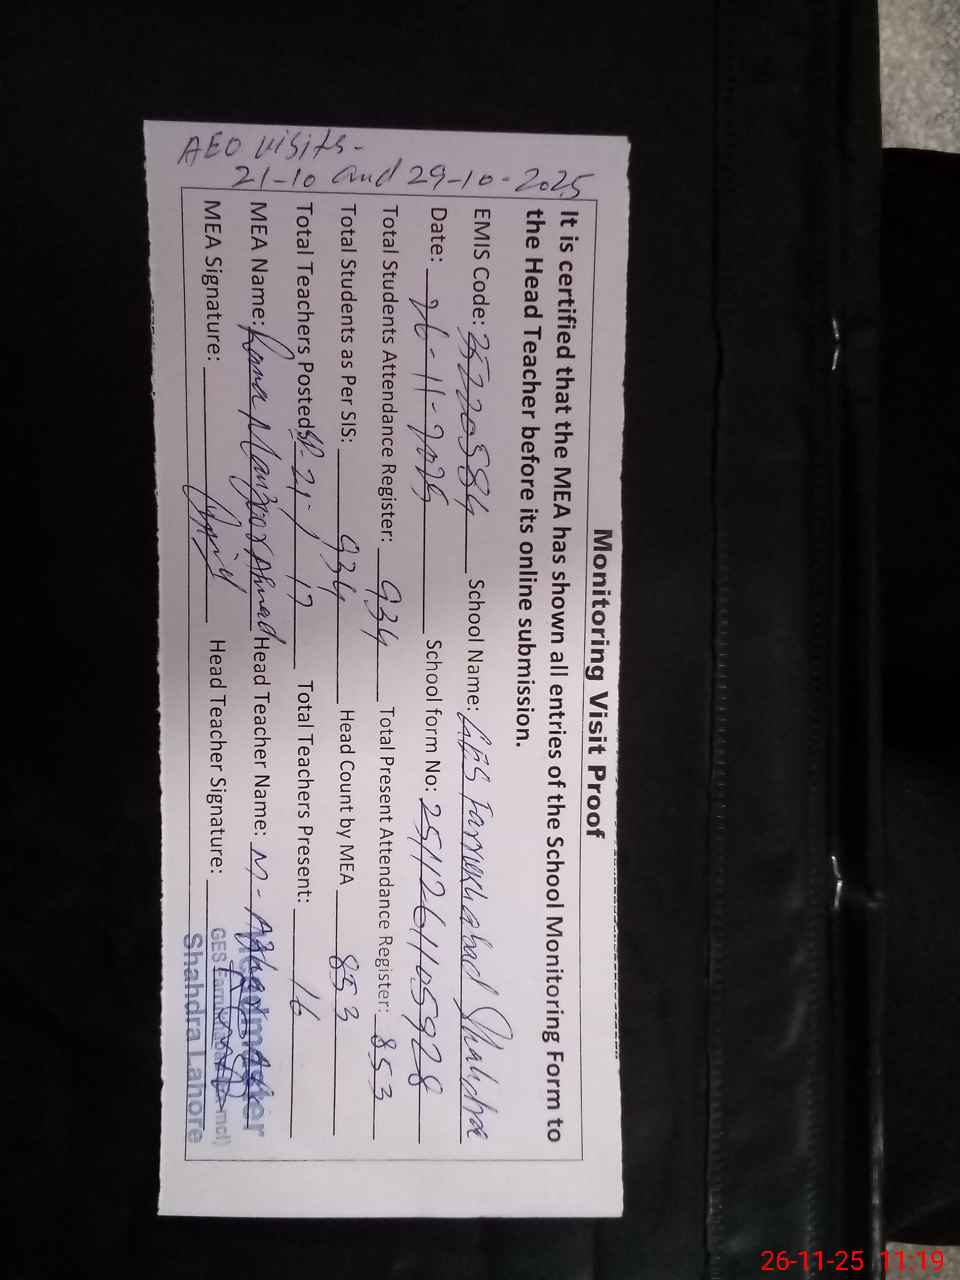 Monitoring Visit Proof
It is certified that the MEA has shown all entries of the School Monitoring Form to
the Head Teacher before its online submission.
EMIS Code: 35220584 School Name: GES Farrukhabad Shahdra
Date: 26-11-2025 School form No: 2511261105928
Total Students Attendance Register: 934 Total Present Attendance Register: 853
Total Students as Per SIS: 934 Head Count by MEA 853
Total Teachers Posted: 17 Total Teachers Present: 16
MEA Name: Rana Manzoor Ahmad Head Teacher Name: M-
MEA Signature: Head Teacher Signature:
Headmaster
GES
Shahdra Lahore
AEO visits-
21-10 and 29-10-2025
26-11-25 11:19